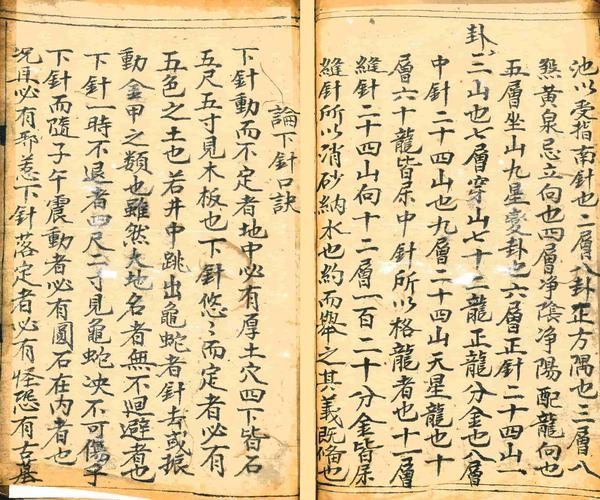 池以受指南針也二層八卦正方隅也三層八
煞黃泉忌立向也四層净陰净陽配龍向也
五層坐山九星變卦也六層正針二十四山一
卦
三山也七層穿山七十二龍正龍分金也八層
中針二十四山也九層二十四山天星龍也十
層六十龍皆屬中針所以格龍者也十一層
縫針二十四山向十二層一百二十分金皆屬
縫針所以消砂納水也約而舉之其義既俻也
論下針口訣
下針動而不定者地中必有厚土穴四下皆石
五尺五寸見木板也下針悠〻而定者必有
五色之土也若井中跳出龜蛇者針去或振
動金甲之類也雖然大地名者無不廻避者也
下針一時不退者四尺二寸見龜蛇決不可傷子
下針而隨子午震動者必有圓石在內者也
况耳必有邪惹下針落定者必有怪恐有古墓